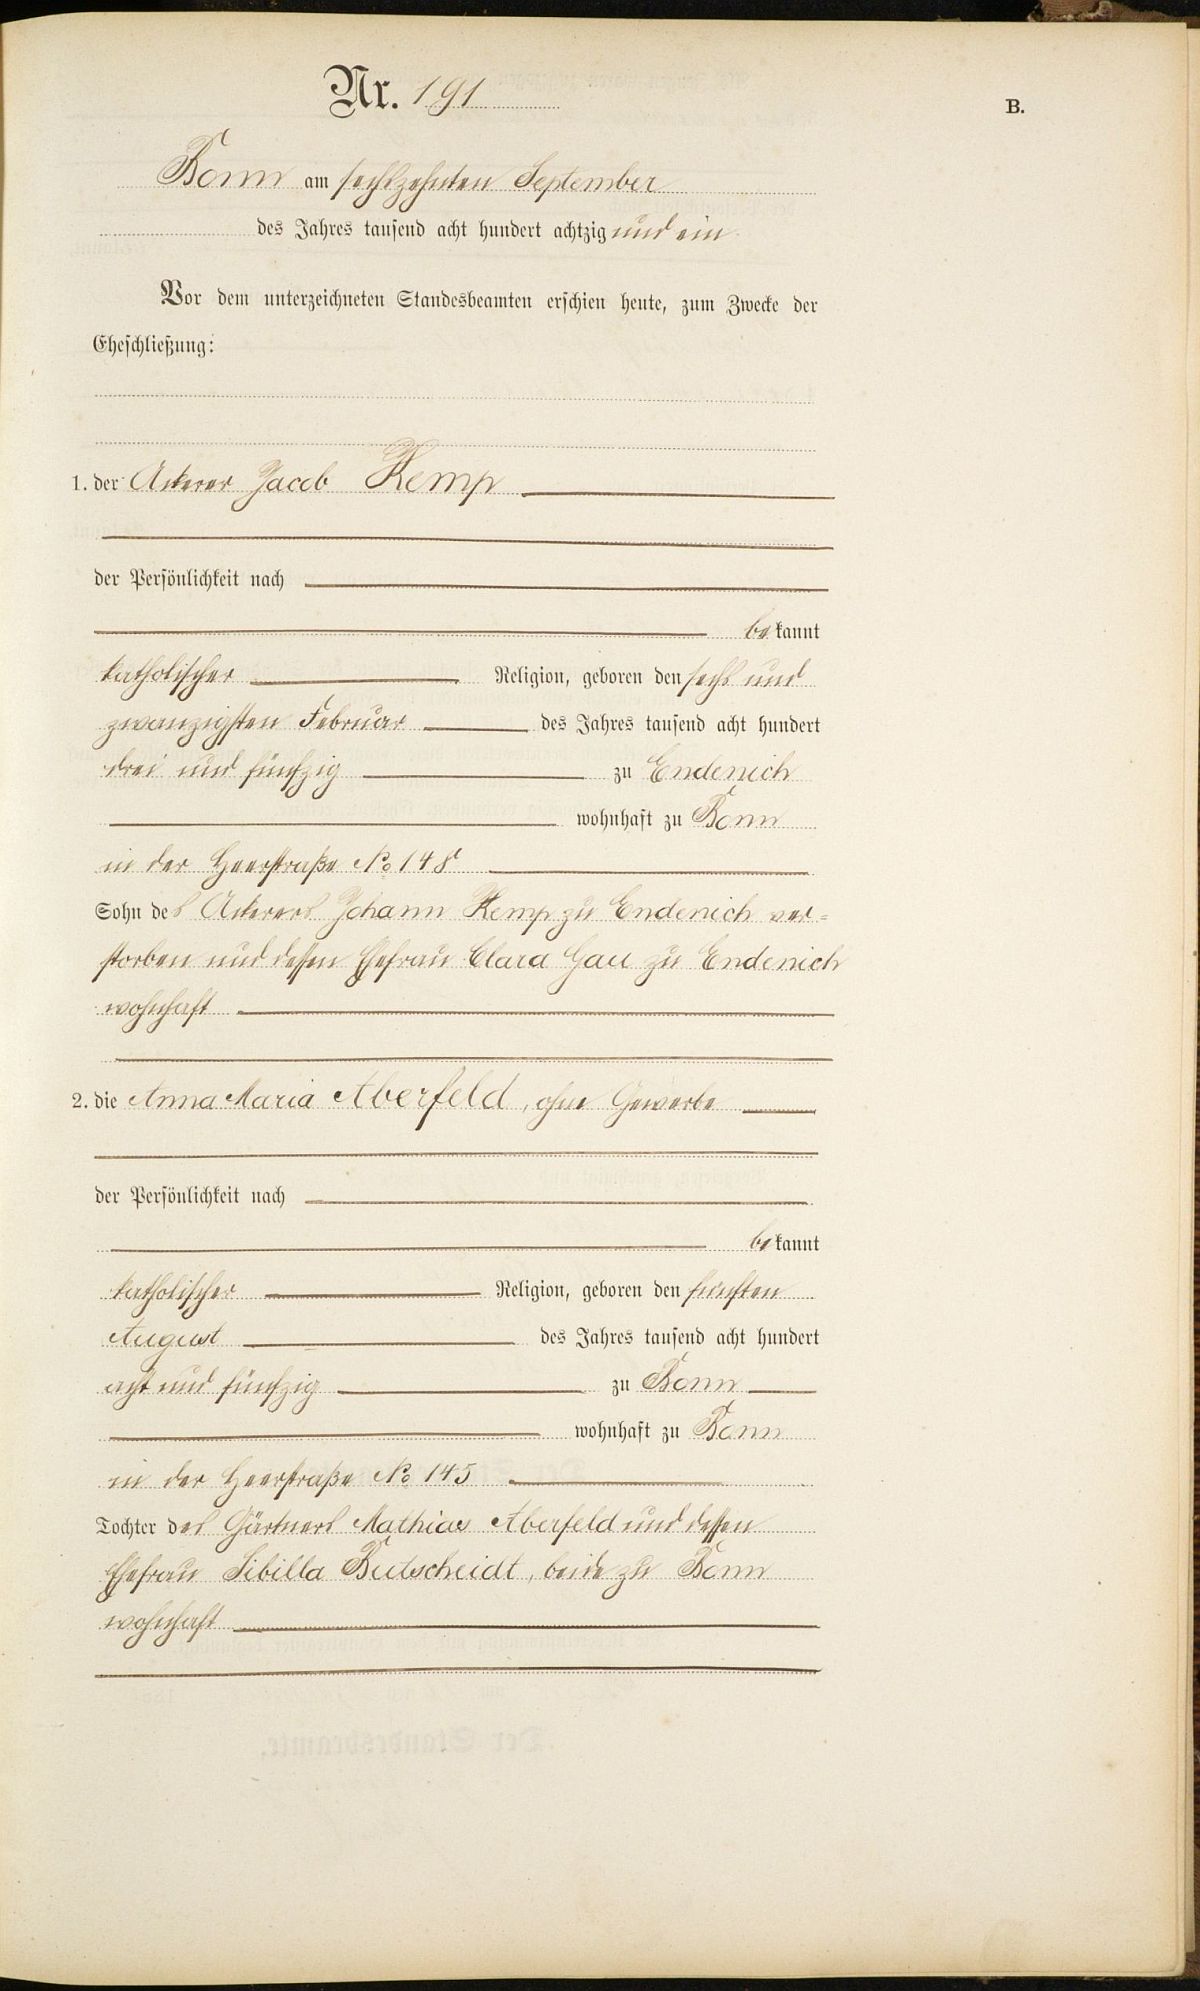 Nr. 191
B.
Bonn am sechszehnten September
des Jahres tausend acht hundert achtzig und ein
Vor dem unterzeichneten Standesbeamten erschien heute, zum Zwecke der
Eheschließung:
1. der Ackerer Jacob Kemp
der Persönlichkeit nach
bekannt
katholischer Religion, geboren den sechs und
zwanzigsten Februar des Jahres tausend acht hundert
drei und fünfzig zu Endenich
wohnhaft zu Bonn
in der Heerstraße No 148
Sohn des Ackerers Johann Kemp zu Endenich ver=
storben und dessen Ehefrau Clara Gau zu Endenich
wohnhaft
2. die Anna Maria Aberfeld, ohne Gewerbe
der Persönlichkeit nach
bekannt
katholischer Religion, geboren den fünften
August des Jahres tausend acht hundert
acht und fünfzig zu Bonn
wohnhaft zu Bonn
in der Heerstraße No 145
Tochter des Gärtners Mathias Aberfeld und dessen
Ehefrau Sibilla Butscheidt, beide zu Bonn
wohnhaft